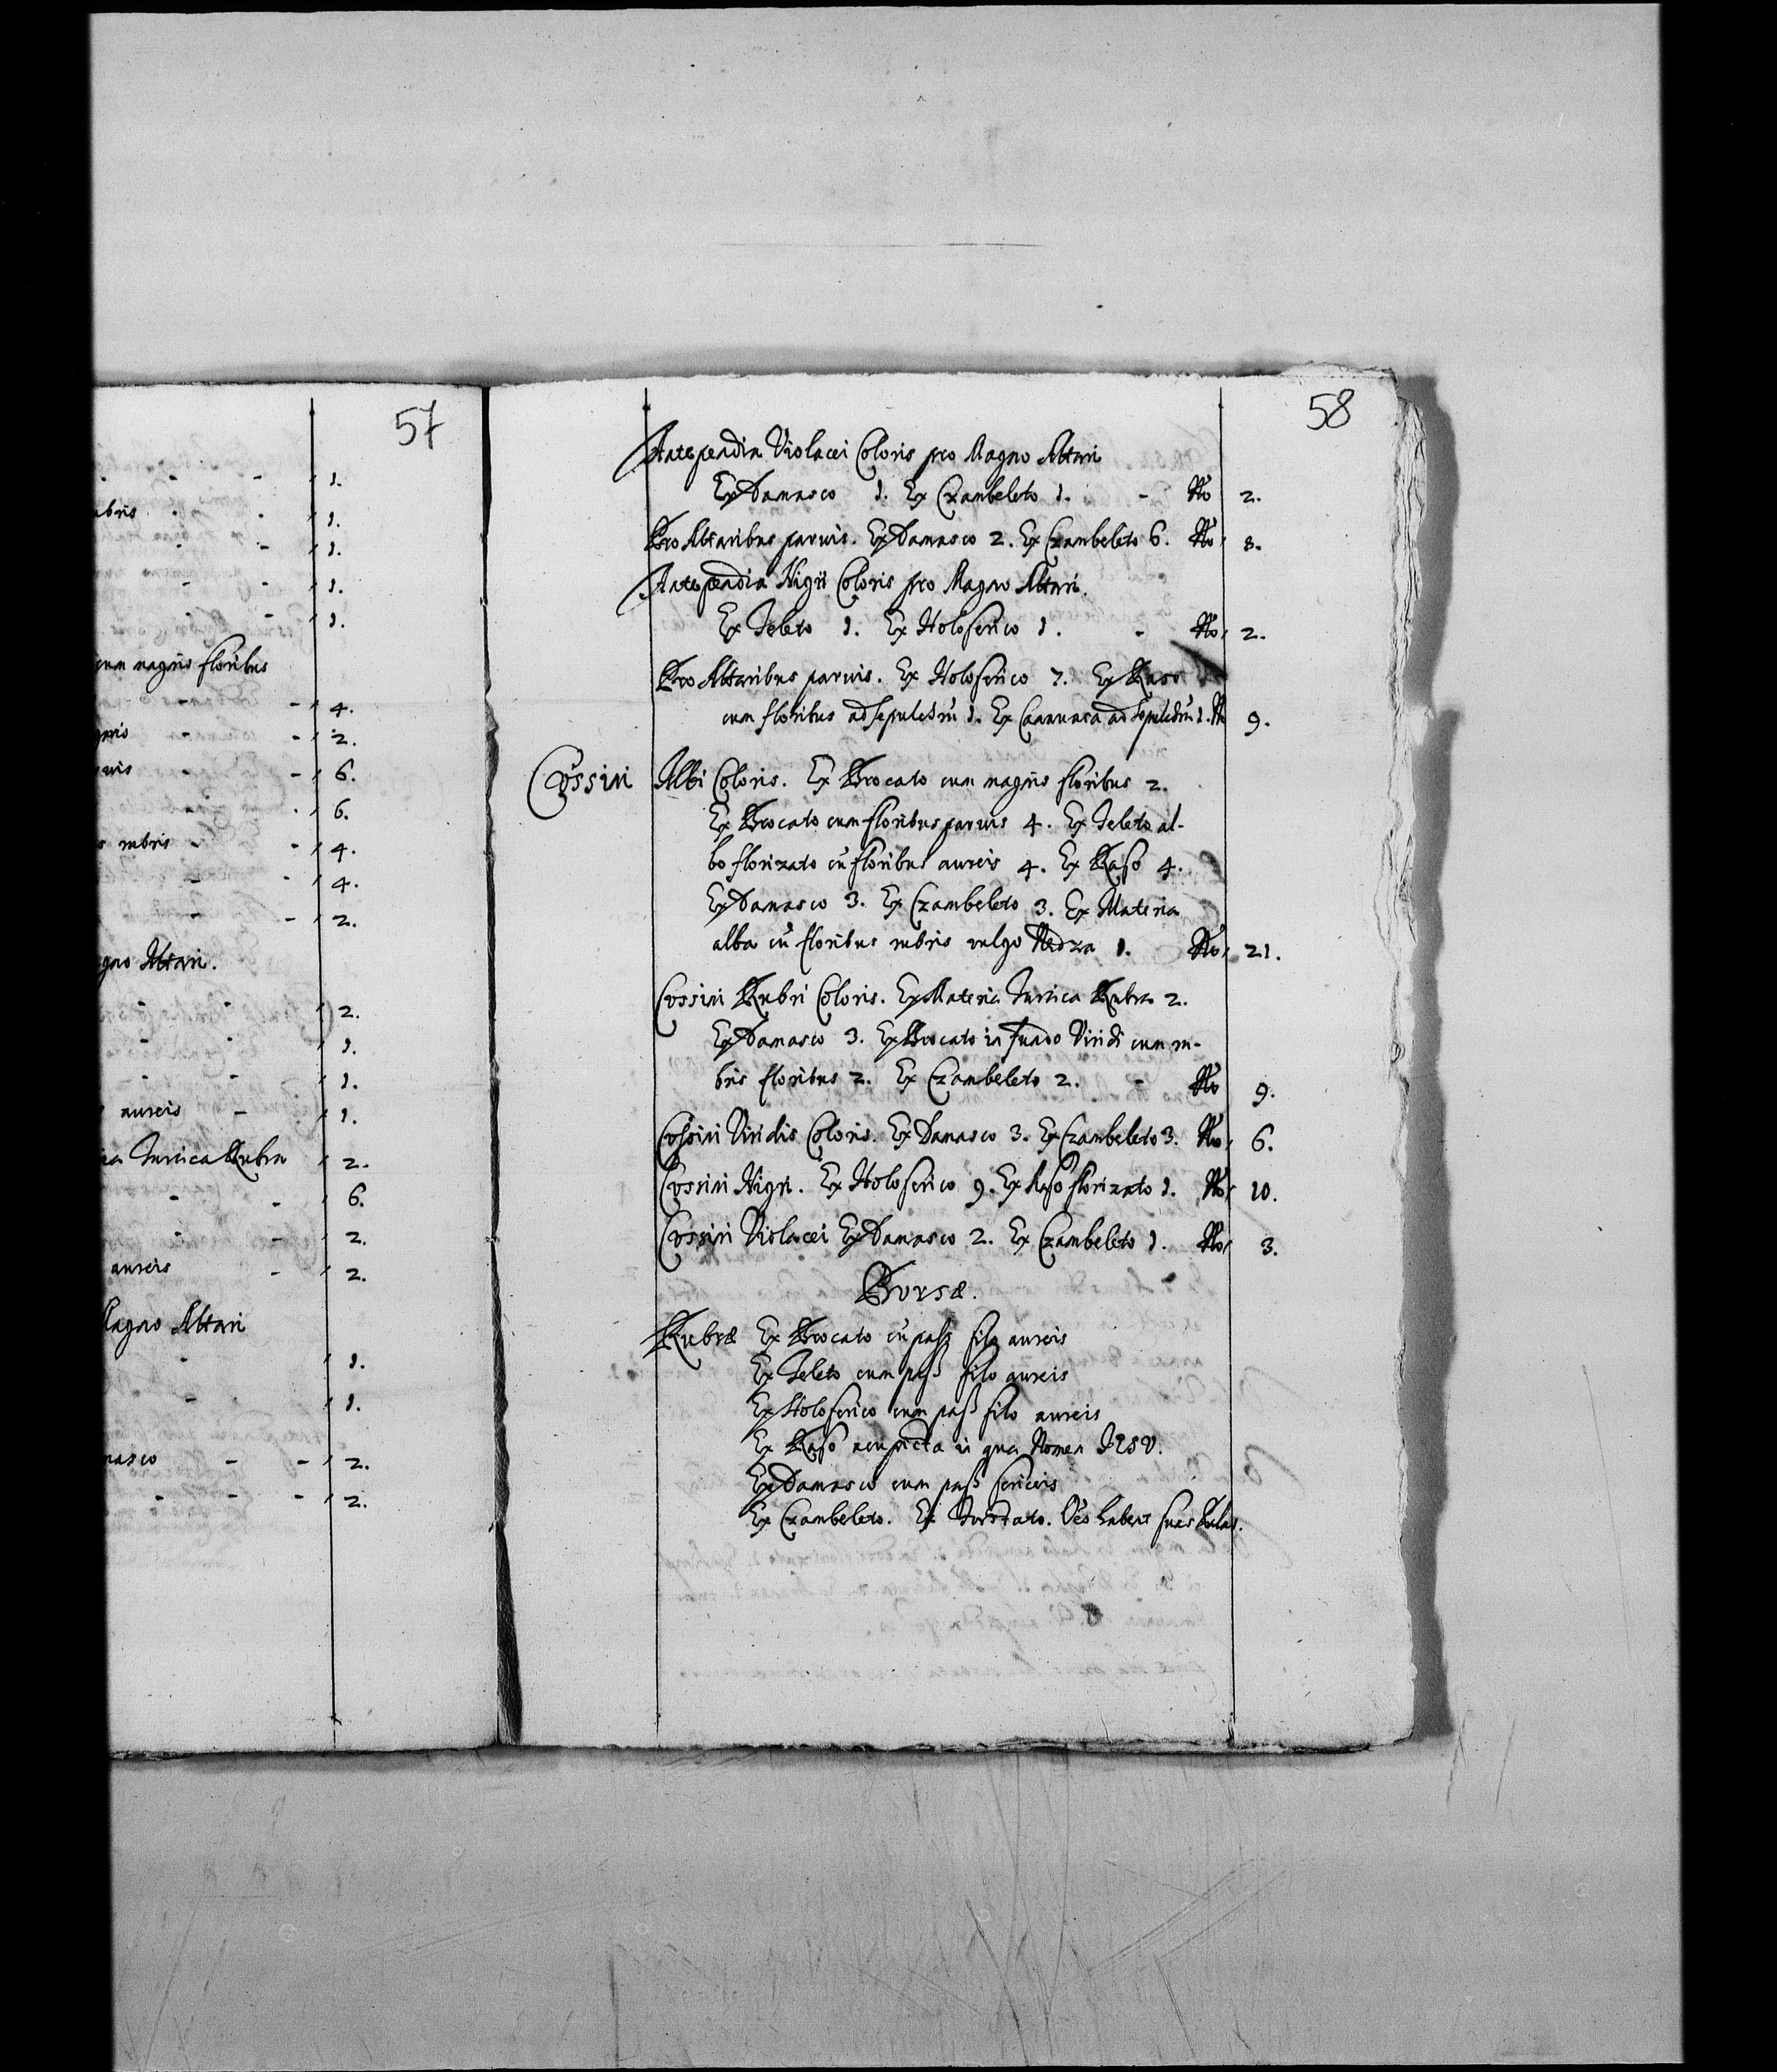 57
1.
ubris 1.
1.
1.
1.
cum magnis floribus
4.
gnis 2.
uis 6.
6.
s rubris 4.
4.
2.
gno Altari.
2.
1.
1.
aureis 1.
ia Turcica Rubra 2.
6.
2.
aureis 2.
Magno Altari
1.
1.
masco 2.
2.
58
Antependia Violacei Coloris pro Magno Altari
Ex Damasco 1. Ex Czambeleto 1. - No 2.
Pro Altaribus paruis. Ex Damasco 2. Ex Czambeleto 6. No 8.
Antependia Nigri Coloris pro Magno Altari.
Ex Teleto 1. Ex Holoserico 1. - No 2.
Pro Altaribus paruis. Ex Holoserico 7. Ex Raso
cum floribus ad sepulchrũ 1. Ex ad sepulchrũ 1. N 9.
Cossini Albi Coloris. Ex Brocato cum magnis floribus 2.
Ex Brocato cum floribus paruis 4. Ex Teleto al-
bo florizato cũ floribus aureis 4. Ex Raso 4.
Ex Damasco 3. Ex Czambeleto 3. Ex Materia
alba cũ floribus rubris vulgo 1. No 21.
Cossini Rubri Coloris. Ex Materia Turcica Rubra 2.
Ex Damasco 3. Ex Brocato in fundo Viridi cum ru-
bris floribus 2. Ex Czambeleto 2. - No 9.
Cossini Viridis Coloris. Ex Damasco 3. Ex Czambeleto 3. No 6.
Cossini Nigri. Ex Holoserico 9. Ex Raso florizato 1. No 10.
Cossini Violacei Ex Damasco 2. Ex Czambeleto 1. No 3.
Bursæ.
Rubræ Ex Brocato cũ pass filo aureis
Ex Teleto cum pass filo aureis
Ex Holoserico cum pass filo aureis
Ex Raso acupicta in qua Nomen IESV.
Ex Damasco cum pass sericeis
Ex Czambeleto. Ex habent suas